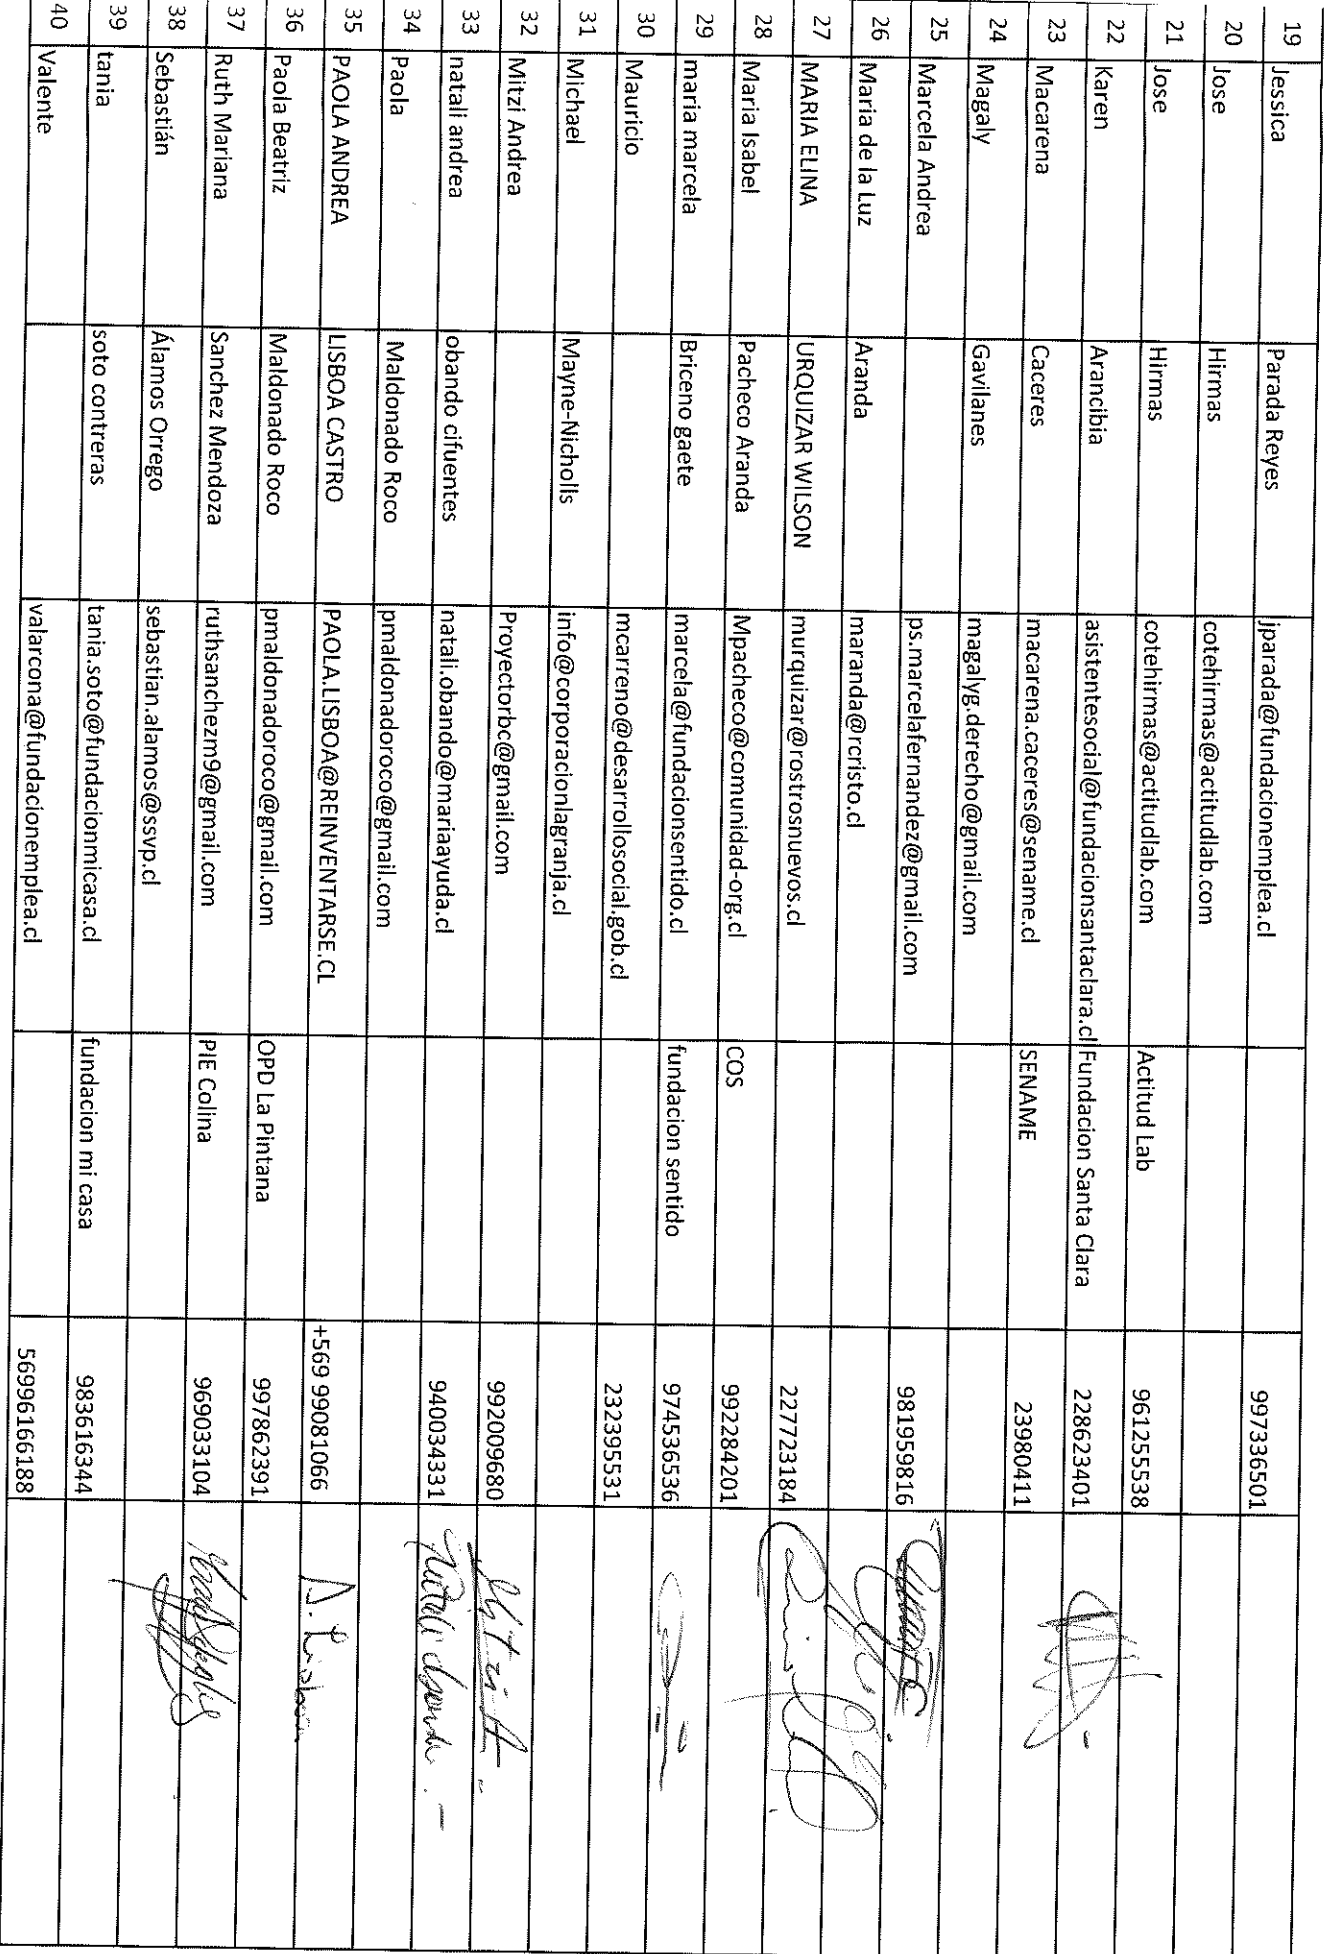 19 Jessica Parada Reyes jparada@fundacionemplea.cl 997336501
20 Jose Hirmas cotehirmas@actitudlab.com
21 Jose Hirmas cotehirmas@actitudlab.com Actitud Lab 961255538
22 Karen Arancibia asistentesocial@fundacionsantaclara.cl Fundacion Santa Clara 228623401
23 Macarena Caceres macarena.caceres@sename.cl SENAME 23980411
24 Magaly Gavilanes magalyg.derecho@gmail.com
25 Marcela Andrea ps.marcelafernandez@gmail.com 981959816
26 Maria de la Luz Aranda maranda@rcristo.cl
27 MARIA ELINA URQUIZAR WILSON murquizar@rostrosnuevos.cl 227723184
28 Maria Isabel Pacheco Aranda Mpacheco@comunidad-org.cl COS 992284201
29 maria marcela Briceno gaete marcela@fundacionsentido.cl fundacion sentido 974536536
30 Mauricio mcarreno@desarrollosocial.gob.cl 232395531
31 Michael Mayne-Nicholls info@corporacionlagranja.cl
32 Mitzi Andrea Proyectorbc@gmail.com 992009680
33 natali andrea obando cifuentes natali.obando@mariaayuda.cl 940034331
34 Paola Maldonado Roco pmaldonadoroco@gmail.com
35 PAOLA ANDREA LISBOA CASTRO PAOLA.LISBOA@REINVENTARSE.CL +569 99081066
36 Paola Beatriz Maldonado Roco pmaldonadoroco@gmail.com OPD La Pintana 997862391
37 Ruth Mariana Sanchez Mendoza ruthsanchezm9@gmail.com PIE Colina 969033104
38 Sebastián Álamos Orrego sebastian.alamos@ssvp.cl
39 tania soto contreras tania.soto@fundacionmicasa.cl fundacion mi casa 983616344
40 Valente valarcona@fundacionemplea.cl 56996166188